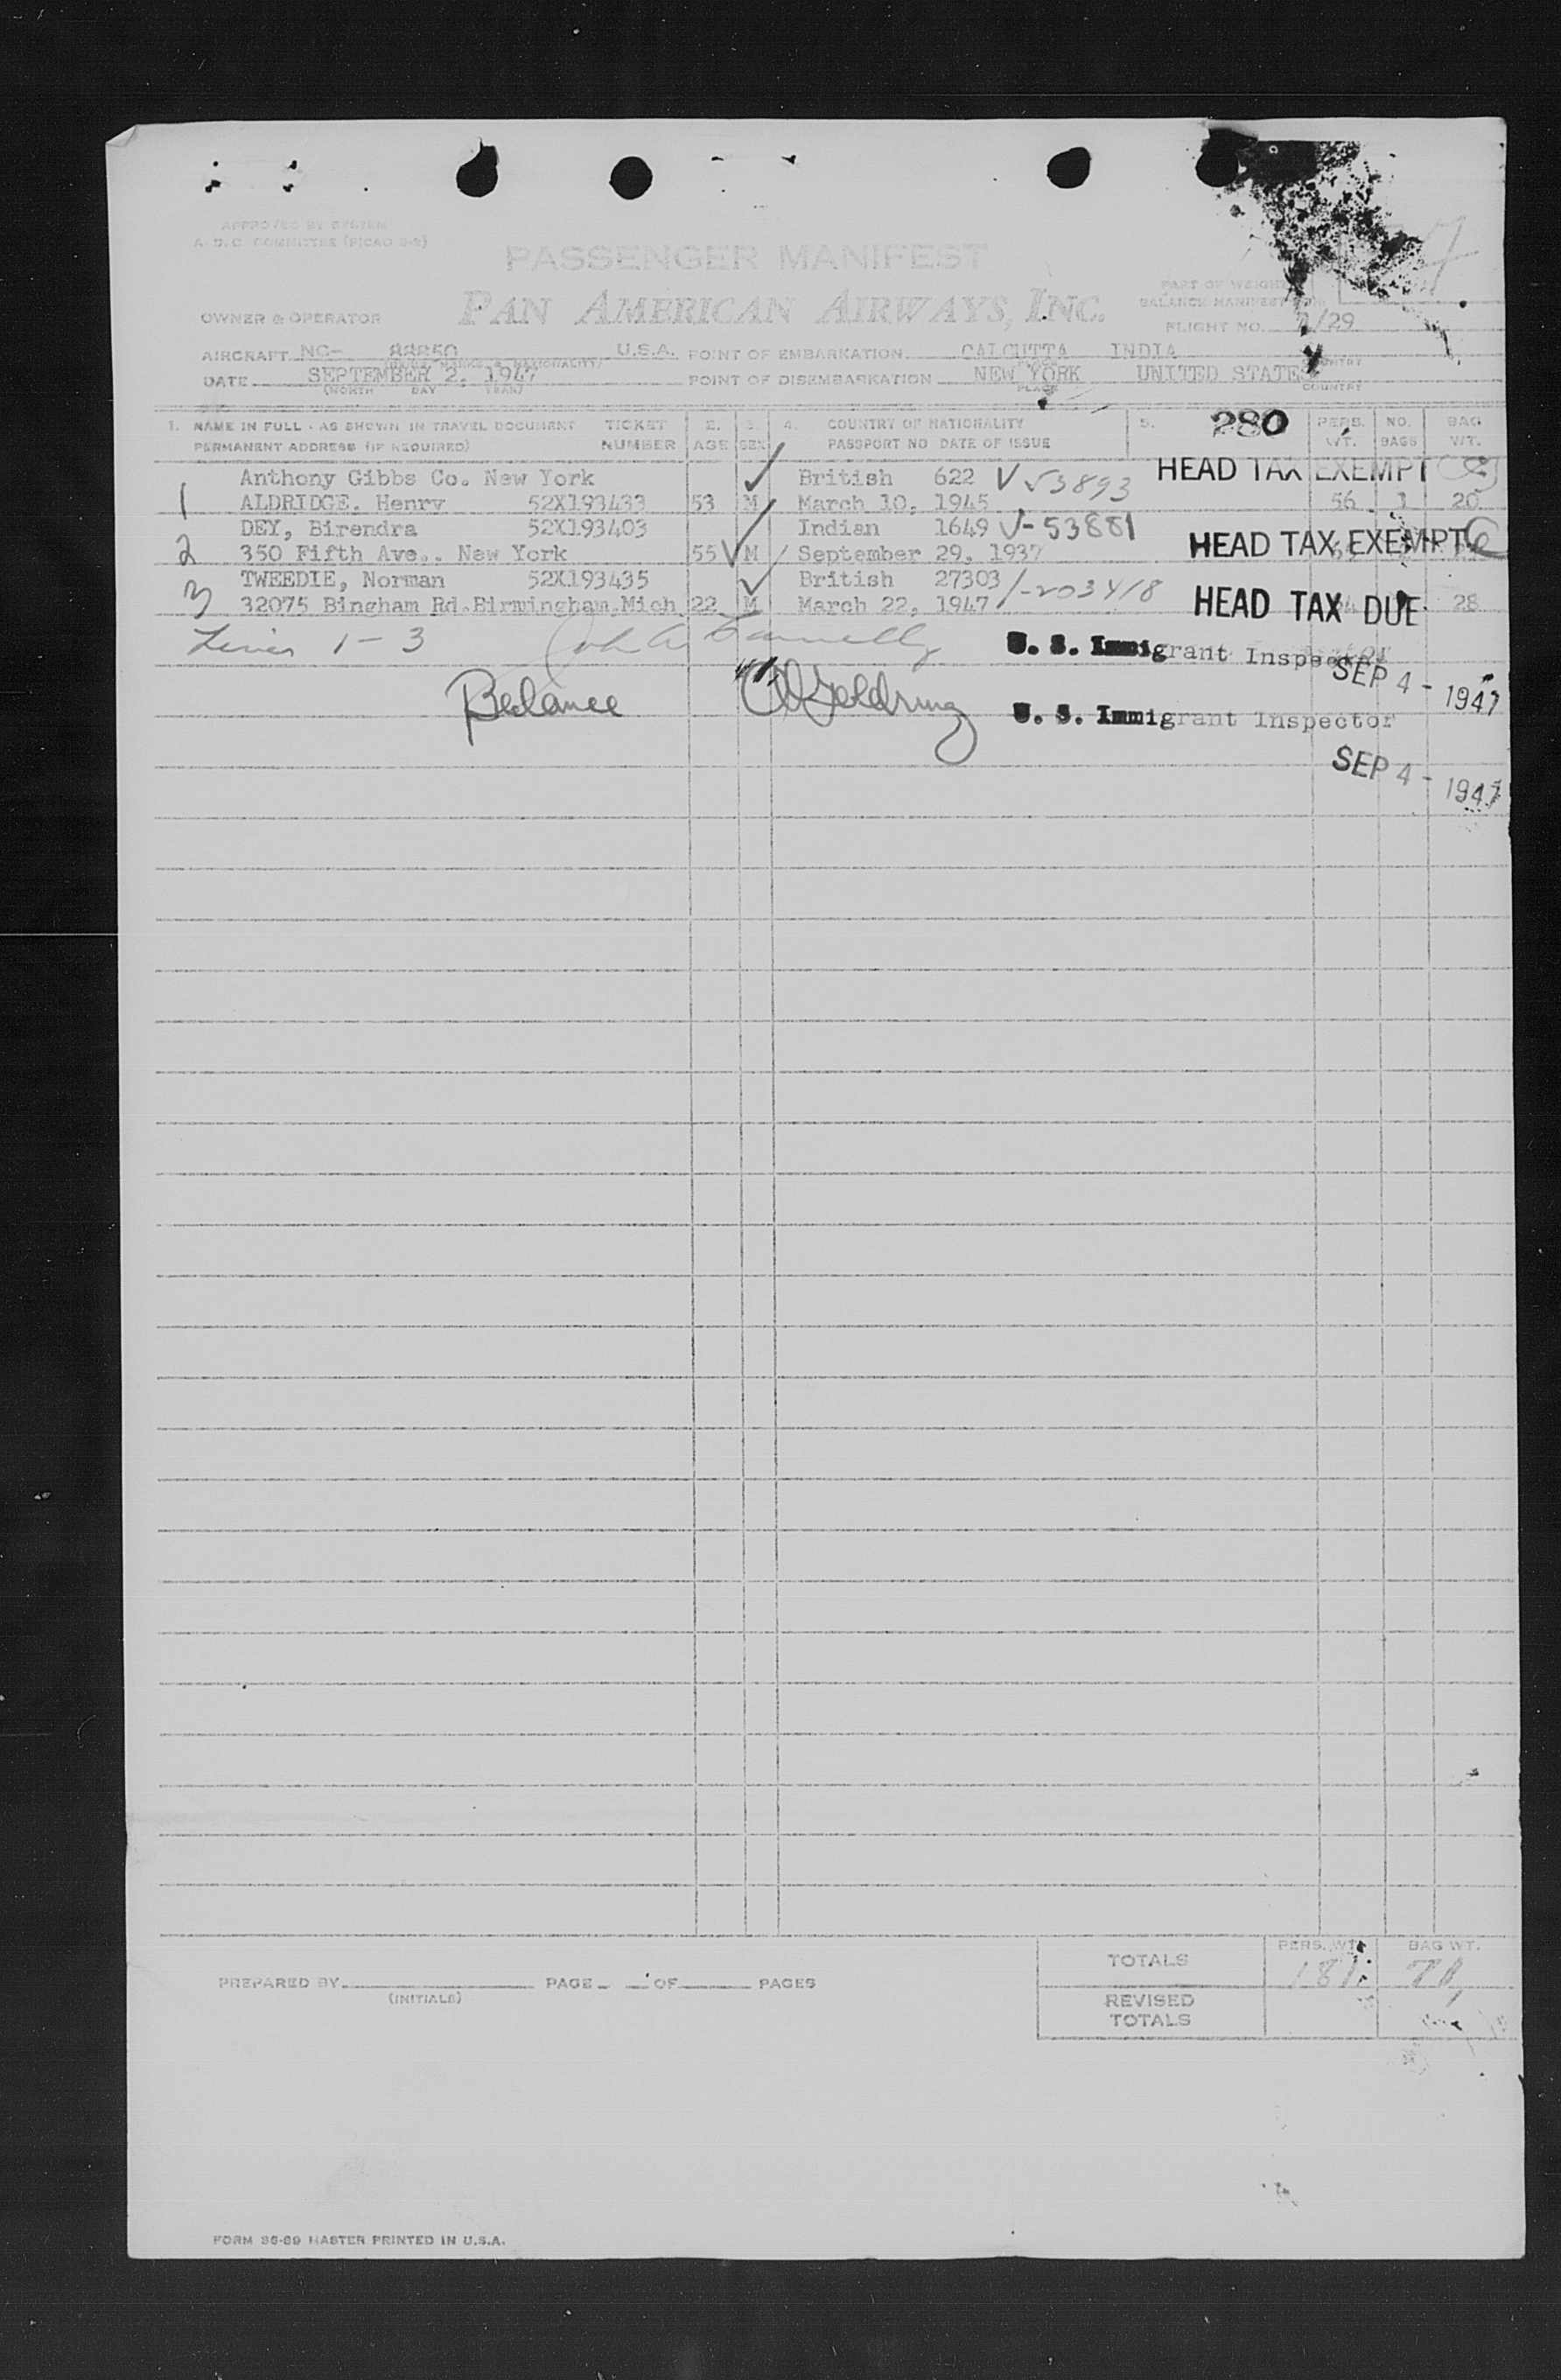 APPROVED BY SYSTEM
A. O. C. COMMITTEE (PICAO 9-2)
PASSENGER MANIFEST
PAN AMERICAN AIRWAYS, INC.
PART OF WEIGHT
BALANCE MANIFEST
OWNER & OPERATOR
FLIGHT NO. /29
AIRCRAFT NC- 88850 U.S.A. POINT OF EMBARKATION CALCUTTA INDIA
DATE SEPTEMBER 2, 1947 POINT OF DISEMBARKATION NEW YORK UNITED STATES
(MONTH DAY YEAR) PLACE COUNTRY
1. NAME IN FULL - AS SHOWN IN TRAVEL DOCUMENT TICKET 2. 3. 4. COUNTRY OF NATIONALITY 5. 280 PERS. NO. BAG
PERMANENT ADDRESS (IF REQUIRED) NUMBER AGE SEX PASSPORT NO DATE OF ISSUE WT. BAGS WT.
Anthony Gibbs Co. New York British 622 V 53893 HEAD TAX EXEMPT
1 ALDRIDGE, Henry 52X193433 53 M March 10, 1945 56 1 20
DEY, Birendra 52X193403 Indian 1649 V-53881 HEAD TAX EXEMPT
2 350 Fifth Ave., New York 55 M September 29, 1937
TWEEDIE, Norman 52X193435 British 27303 1-203418 HEAD TAX DUE
3 32075 Bingham Rd.Birmingham.Mich 22 M March 22, 1947 28
Lines 1-3 U. S. Immigrant Inspector
SEP 4 - 1947
Balance U. S. Immigrant Inspector
SEP 4 - 1947
TOTALS PERS. WT. BAG WT.
PREPARED BY PAGE OF PAGES
(INITIALS)
REVISED
TOTALS
FORM 96-69 MASTER PRINTED IN U.S.A.